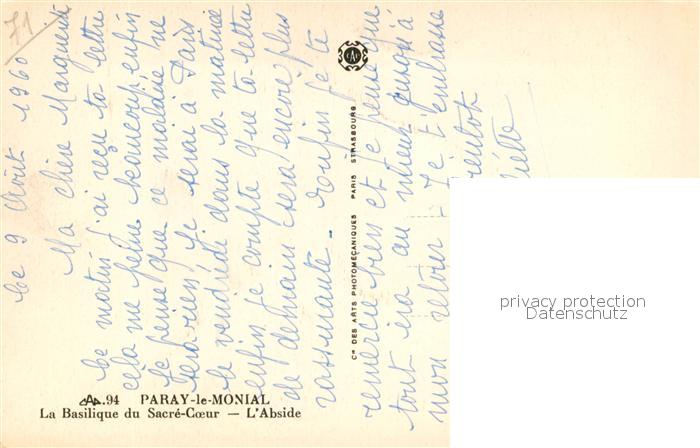 71
le 9 Août 1960
Ma chère Marguerite
Ce matin j'ai reçu ta lettre
cela me peine beaucoup enfin
je pense que ce malaise ne
sera rien je serai à Paris
le vendredi dans la matinée
enfin je compte que ta lettre
de demain sera encore plus
rassurante. enfin je te
remercie bien et je pense que
tout ira au mieux jusqu'à
mon retour - Je t'embrasse
Cie DES ARTS PHOTOMÉCANIQUES PARIS STRASBOURG
CAP
.94 PARAY-le-MONIAL
La Basilique du Sacré-Cœur — L'Abside
privacy protection
Datenschutz